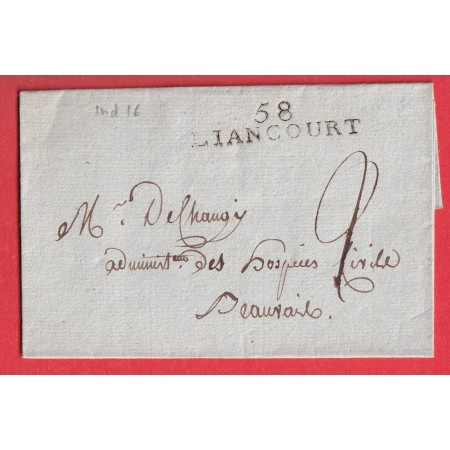 ind 16
58
LIANCOURT
Mr. DeChangy
administeur des hospices Civils
Beauvais.
2